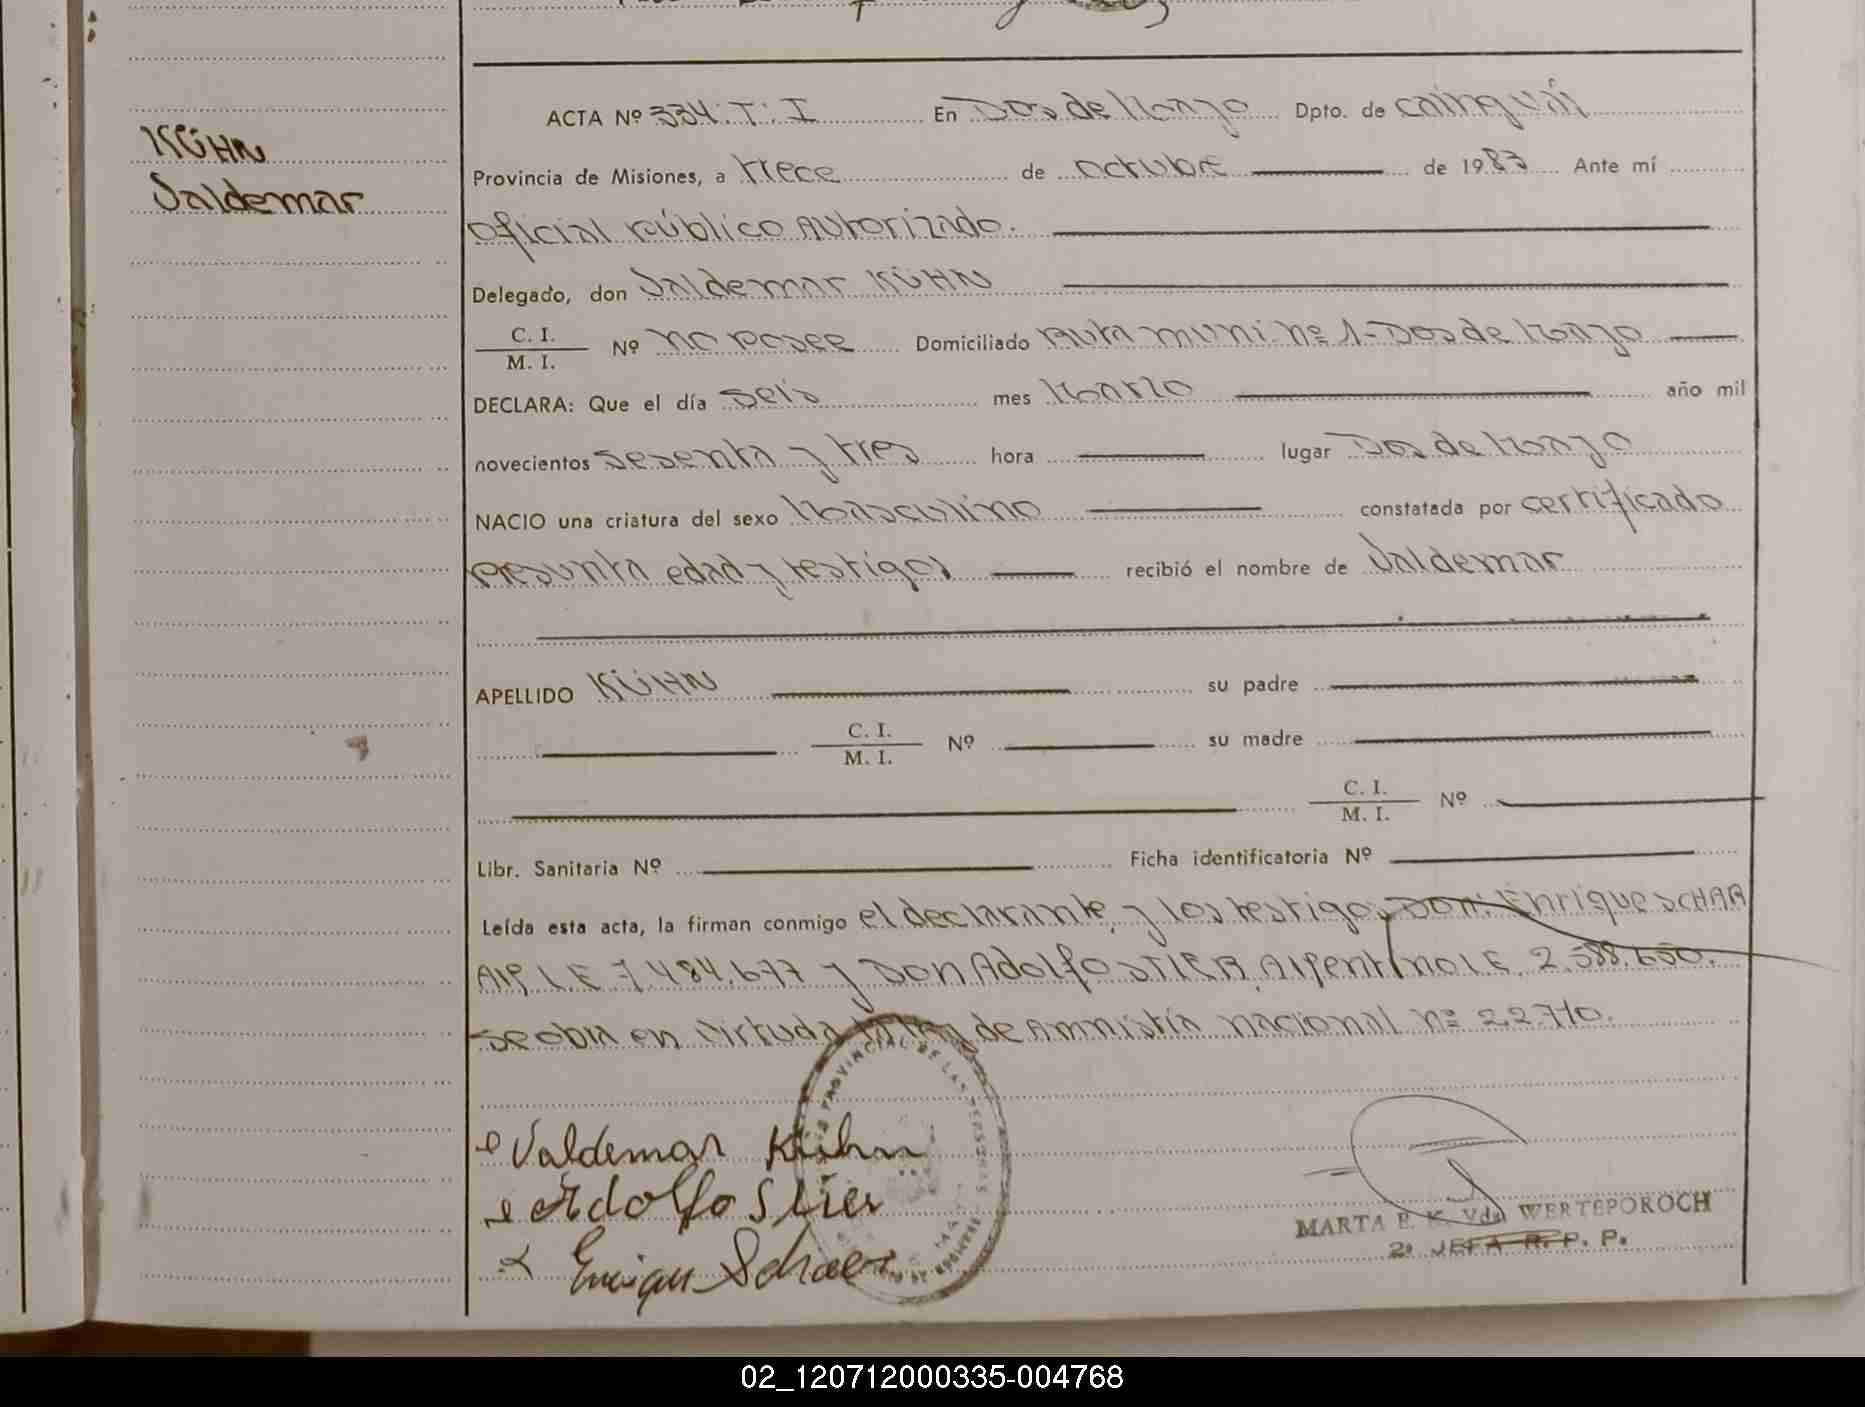 KÜHN
Valdemar
ACTA Nº 334. T. I En Dos de Mayo Dpto. de cainguás
Provincia de Misiones, a trece de octubre de 1983 Ante mí
oficial público autorizado.
Delegado, don Valdemar KÜHN
C. I.
M. I.
Nº no posee Domiciliado Ruta muni. nº 1-Dos de Mayo
DECLARA: Que el día seis mes Marzo año mil
novecientos sesenta y tres hora lugar Dos de Mayo
NACIO una criatura del sexo Masculino constatada por certificado
presunta edad y testigos recibió el nombre de Valdemar
APELLIDO KÜHN su padre
C. I.
M. I.
Nº su madre
C. I.
M. I.
Nº
Libr. Sanitaria Nº Ficha identificatoria Nº
Leída esta acta, la firman conmigo el declarante, y los testigos Don: Enrique SCHAA
Arg. L.E 7.484.677 y Don Adolfo STIER, Argentino L.E. 2.588.650.
se obra en virtud de de Amnistía nacional nº 22.710.
PROVINCIAL DE LAS PERSONAS
Valdemar Kühn
Adolfo Stier
Enrique Schaer
MARTA E. K. Vda WERTEPOROCH
2º JEFA R. P. P.
02_120712000335-004768